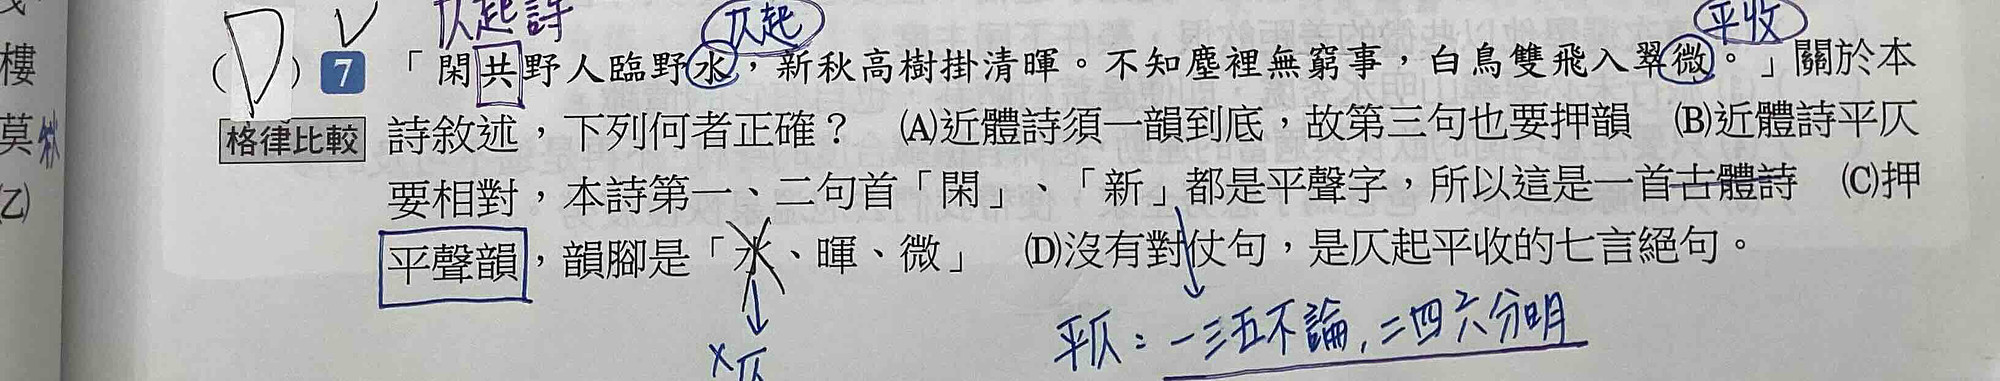 仄起詩 仄起 平收
(D) 7 「閑共野人臨野水，新秋高樹掛清暉。不知塵裡無窮事，白鳥雙飛入翠微。」關於本
格律比較 詩敘述，下列何者正確？ (A)近體詩須一韻到底，故第三句也要押韻 (B)近體詩平仄
要相對，本詩第一、二句首「閑」、「新」都是平聲字，所以這是一首古體詩 (C)押
平聲韻，韻腳是「水、暉、微」 (D)沒有對仗句，是仄起平收的七言絕句。
平仄：一三五不論，二四六分明
×仄
樓
莫
(乙)